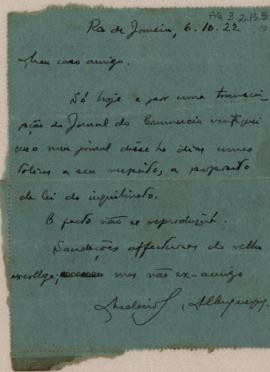 Rio de Janeiro, 6.10.22
Meu caro amigo.
Só hoje e por uma transcri-
pção do Jornal do Commercio verifiquei
que o meu jornal disse ha dias umas
tolices a seu respeito, a proposito
da lei do inquilinato.
O facto não se reproduzirá.
Saudações affectuosas do velho
excollega, mas não ex-amigo
Medeiros Albuquerque